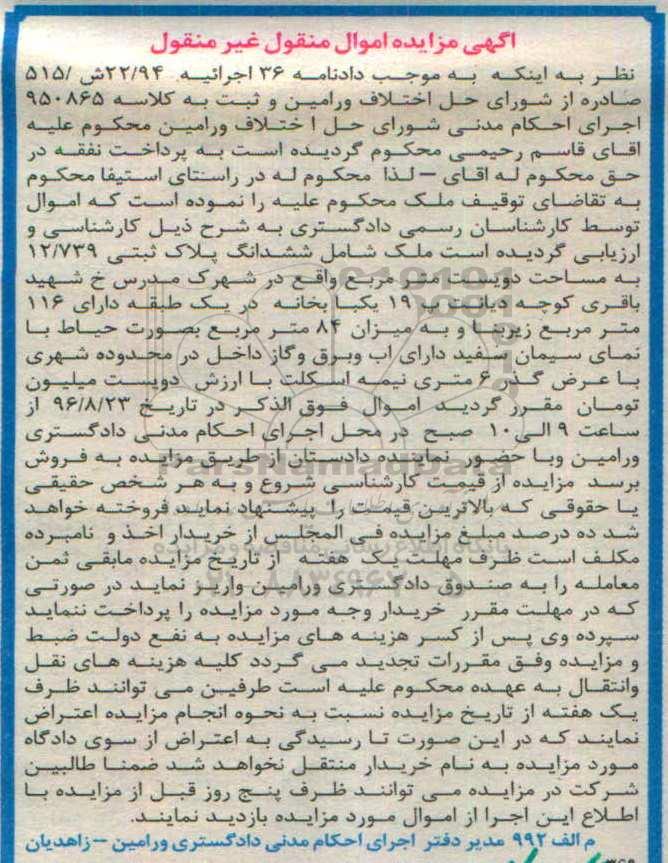 اگهی مزایده اموال منقول غیر منقول
نظر به اینکه به موجب دادنامه ۳۶ اجرائیه ۲۲/۹۴ش /۵۱۵
صادره از شورای حل اختلاف ورامین و ثبت به کلاسه ۹۵۰۸۶۵
اجرای احکام مدنی شورای حل ا ختلاف ورامین محکوم علیه
اقای قاسم رحیمی محکوم گردیده است به پرداخت نفقه در
حق محکوم له اقای – لذا محکوم له در راستای استیفا محکوم
به تقاضای توقیف ملک محکوم علیه را نموده است که اموال
توسط کارشناسان رسمی دادگستری به شرح ذیل کارشناسی و
ارزیابی گردیده است ملک شامل ششدانگ پلاک ثبتی ۱۲/۷۳۹
به مساحت دویست متر مربع واقع در شهرک مدرس خ شهید
باقری کوچه دیانت پ ۱۹ یکبا بخانه در یک طبقه دارای ۱۱۶
متر مربع زیربنا و به میزان ۸۴ متر مربع بصورت حیاط با
نمای سیمان سفید دارای اب وبرق وگاز داخل در محدوده شهری
با عرض گذر ۶ متری نیمه اسکلت با ارزش دویست میلیون
تومان مقرر گردید اموال فوق الذکر در تاریخ ۹۶/۸/۲۳ از
ساعت ۹ الی ۱۰ صبح در محل اجرای احکام مدنی دادگستری
ورامین وبا حضور نماینده دادستان از طریق مزایده به فروش
برسد مزایده از قیمت کارشناسی شروع و به هر شخص حقیقی
یا حقوقی که بالاترین قیمت را پیشنهاد نماید فروخته خواهد
شد ده درصد مبلغ مزایده فی المجلس از خریدار اخذ و نامبرده
مکلف است ظرف مهلت یک هفته از تاریخ مزایده مابقی ثمن
معامله را به صندوق دادگستری ورامین واریز نماید در صورتی
که در مهلت مقرر خریدار وجه مورد مزایده را پرداخت ننماید
سپرده وی پس از کسر هزینه های مزایده به نفع دولت ضبط
و مزایده وفق مقررات تجدید می گردد کلیه هزینه های نقل
وانتقال به عهده محکوم علیه است طرفین می توانند ظرف
یک هفته از تاریخ مزایده نسبت به نحوه انجام مزایده اعتراض
نمایند که در این صورت تا رسیدگی به اعتراض از سوی دادگاه
مورد مزایده به نام خریدار منتقل نخواهد شد ضمنا طالبین
شرکت در مزایده می توانند ظرف پنج روز قبل از مزایده با
اطلاع این اجرا از اموال مورد مزایده بازدید نمایند.
م الف ۹۹۲ مدیر دفتر اجرای احکام مدنی دادگستری ورامین – زاهدیان